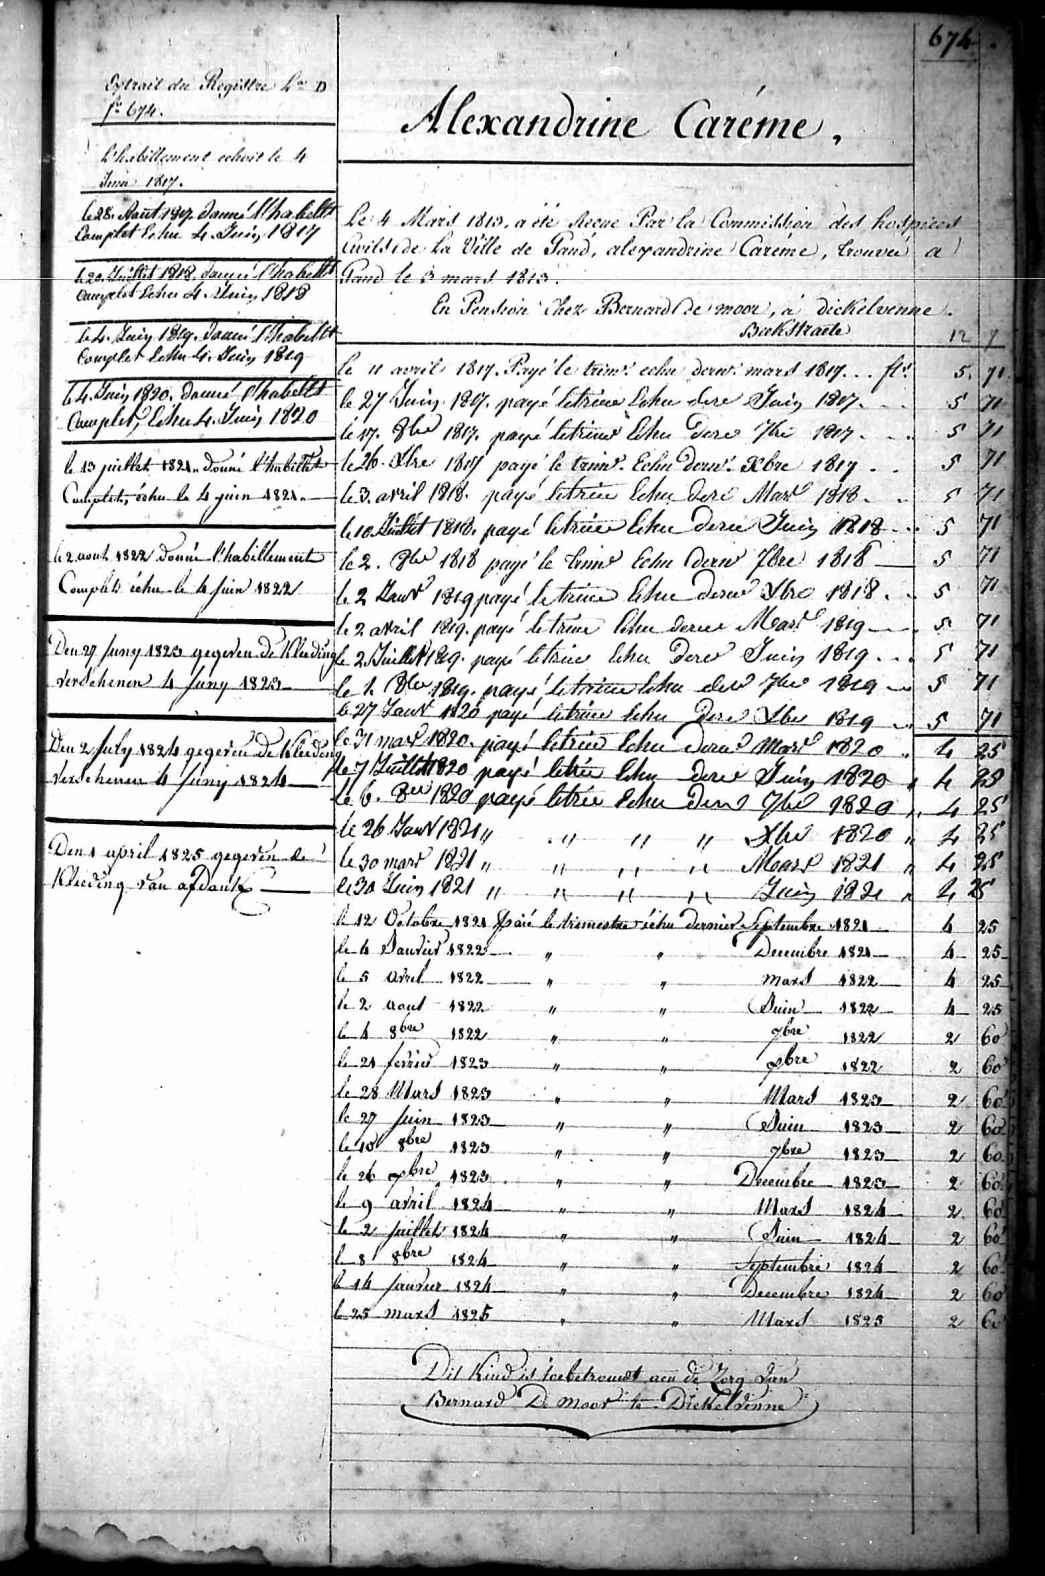 674.
Extrait du Registre Lre D
fo 674.
L'habillement echoit le 4
Juin 1817.
le 28. Aout 1817. donné l'habillt
Complet Echu 4. Juin 1817
le 20. Juillet 1818. donné l'habillt
Complet Echu 4. Juin 1818
le 4. Juin 1819. donné l'habillt
Complet Echu 4. Juin 1819
le 4. Juin 1820. donné l'habillt
Complet, Echu 4. Juin 1820
le 13 juillet 1821. donné l'habillt
Complet, échu le 4 juin 1821.
le 2 aout 1822 donné l'habillement
Complet échu le 4 Juin 1822
Den 27 Juny 1823 gegeven de Kleeding
verschenen 4 Juny 1823
Den 2 July 1824 gegeven de Kleeding
verschenen 4 Juny 1824
Den 1 april 1825 gegeven de
Kleeding van afdank
Alexandrine Caréme.
Le 4 Mars 1813. a été Recue Par la Commission des hospices
Civils de la Ville de Gand, alexandrine Careme, trouvée a
Gand le 3 mars 1813.
En Pension Chez Bernard de moor, a dickelvenne.
12 7
le 11 avril 1817. Payé le trimr. echu dernr. mars 1817... fls. 5. 71
le 27 Juin 1817. payé letrime Echu dere Juin 1817. 5 71
le 17. 8bre 1817. payé letrime Echu dere 7bre 1817. 5 71
le 26. Xbre 1817 payé le trimr. Echu dernr. Xbre 1817 5 71
le 3. avril 1818. payé letrime Echu dere Mars 1818. 5 71
le 10. Juillet 1818. payé letrime Echu dere Juin 1818 5 71
le 2. 8bre 1818 payé le trimr Echu dernr 7bre 1818 5 71
le 2 Janvr 1819 payé letrime Echu dernr Xbre 1818 5 71
le 2 avril 1819. payé letrime Echu dere Mars 1819 5 71
le 2 Juillet 1819. payé letrime Echu dere Juin 1819 5 71
le 1. 8bre 1819. payé letrime Echu dere 7bre 1819 5 71
le 27 Janvr 1820 payé letrime Echu dere Xbre 1819 5 71
le 31 mars 1820. payé letrime Echu dernr Mars 1820 4 25
le 7 Juillet 1820 payé letrie Echu dere Juin 1820 4 25
le 6. 8bre 1820 payé letrie Echu dere 7bre 1820 4 25
le 26 Janvr 1821 " " " " Xbre 1820 " 4 25
le 30 mars 1821 " " " " Mars 1821 " 4 25
le 30 Juin 1821 " " " " Juin 1821 " 4 25
le 12 Octobre 1821 Payé le trimestre échu dernier Septembre 1821 4 25
le 4 Janvier 1822 " " Decembre 1821 4 25
le 5 avril 1822 " " mars 1822 4 25
le 2 aout 1822 " " Juin 1822 4 25
le 4 8bre 1822 " " 7bre 1822 2 60
le 21 fevrier 1823 " " xbre 1822 2 60
le 28 Mars 1823 " " Mars 1823 2 60
le 27 Juin 1823 " " Juin 1823 2 60
le 10 8bre 1823 " " 7bre 1823 2 60
le 26 xbre 1823 " " Decembre 1823 2 60
le 9 avril 1824 " " Mars 1824 2 60
le 2 juillet 1824 " " Juin 1824 2 60
le 8 8bre 1824 " " Septembre 1824 2 60
le 14 janvier 1824 " " Decembre 1824 2 60
le 25 mars 1825 " " Mars 1825 2 60
Dit Kind is toebetrouwt aen de Zorg van
Bernard De Moor te Dickelvenne